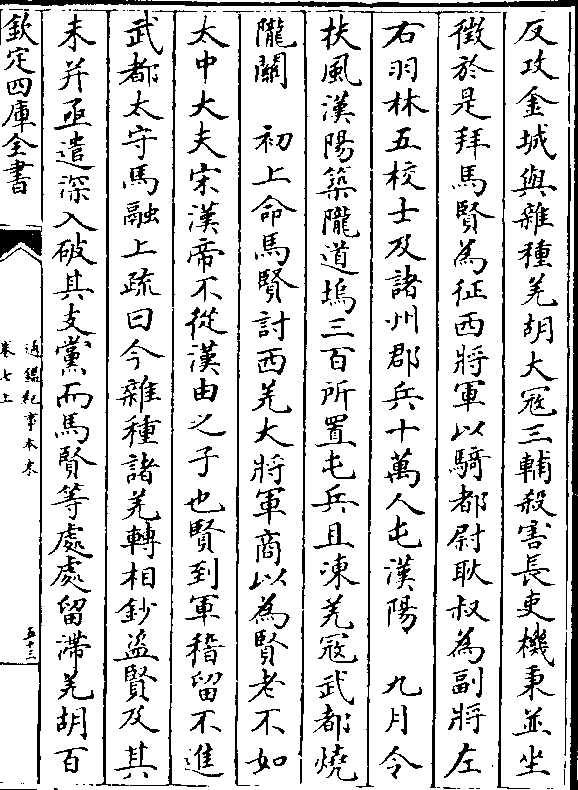 反攻金城與雜種羌胡大寇三輔殺害長吏機秉並坐
徵於是拜馬賢為征西將軍以騎都尉耿叔為副將左
右羽林五校士及諸州郡兵十萬人屯漢陽　九月令
扶風漢陽築隴道塢三百所置屯兵且凍羌寇武都燒
隴關　初上命馬賢討西羌大將軍商以為賢老不如
太中大夫宋漢帝不從漢由之子也賢到軍稽留不進
武都太守馬融上疏曰今雜種諸羌轉相鈔盗賢及其
未并亟遣深入破其支黨而馬賢等處處留滯羌胡百
欽定四庫全書
通鑑紀事本末
卷七上
五十三